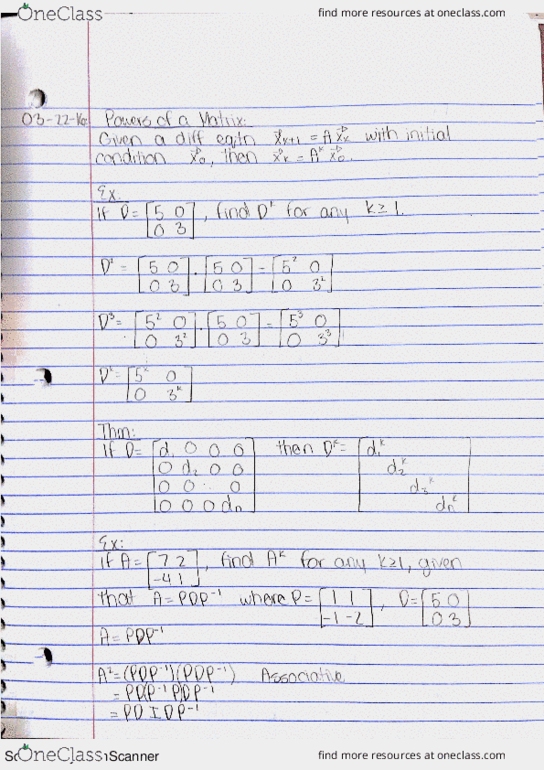 OneClass find more resources at oneclass.com
03-22-16 Powers of a Matrix:
Given a diff eqtn x⃗ₖ₊₁ = A x⃗ₖ with initial
condition x⃗₀, then x⃗ₖ = Aᵏ x⃗₀.
Ex.
If D = [5 0; 0 3], find Dᵏ for any k ≥ 1.
D² = [5 0; 0 3] · [5 0; 0 3] = [5² 0; 0 3²]
D³ = [5² 0; 0 3²] · [5 0; 0 3] = [5³ 0; 0 3³]
Dᵏ = [5ᵏ 0; 0 3ᵏ]
Thm:
If D = [d₁ 0 0 0; 0 d₂ 0 0; 0 0 ⋱ 0; 0 0 0 dₙ] then Dᵏ = [d₁ᵏ d₂ᵏ d₃ᵏ dₙᵏ]
Ex:
If A = [7 2; -4 1], find Aᵏ for any k≥1, given
that A = PDP⁻¹ where P = [1 1; -1 -2], D = [5 0; 0 3]
A = PDP⁻¹
A² = (PDP⁻¹)(PDP⁻¹) Associative
= PD(P⁻¹P)DP⁻¹
= PD I DP⁻¹
OneClass Scanner find more resources at oneclass.com